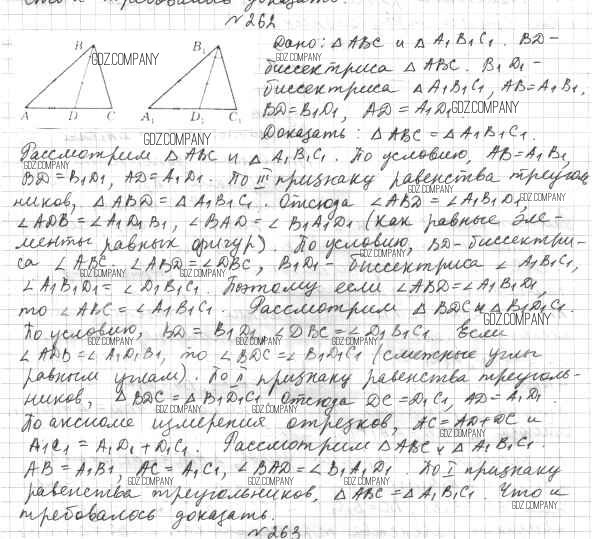 что и требовалось доказать.
№262
Дано: △ABC и △A₁B₁C₁. BD-
биссектриса △ABC. B₁D₁-
биссектриса △A₁B₁C₁, AB=A₁B₁,
BD=B₁D₁, AD=A₁D₁
Доказать: △ABC=△A₁B₁C₁.
B
B₁
A D C A₁ D₁ C₁
GDZ.COMPANY
Рассмотрим △ABC и △A₁B₁C₁. По условию, AB=A₁B₁,
BD=B₁D₁, AD=A₁D₁. По III признаку равенства треуголь
ников, △ABD=△A₁B₁C₁. Отсюда ∠ABD=∠A₁B₁D₁,
∠ADB=∠A₁D₁B₁, ∠BAD=∠B₁A₁D₁ (как равные эле-
менты равных фигур). По условию, BD-биссектри-
са ∠ABC. ∠ABD=∠DBC, B₁D₁- биссектриса ∠A₁B₁C₁,
∠A₁B₁D₁=∠D₁B₁C₁. Поэтому если ∠ABD=∠A₁B₁D₁,
то ∠ABC=∠A₁B₁C₁. Рассмотрим △BDC и △B₁D₁C₁.
По условию, BD=B₁D₁, ∠DBC=∠D₁B₁C₁. Если
∠ADB=∠A₁D₁B₁, то ∠BDC=∠B₁D₁C₁ (смежные углы
равным углам). По II признаку равенства треуголь-
ников, △BDC=△B₁D₁C₁. Отсюда DC=D₁C₁, AD=A₁D₁.
По аксиоме измерения отрезков, AC=AD+DC и
A₁C₁=A₁D₁+D₁C₁. Рассмотрим △ABC и △A₁B₁C₁.
AB=A₁B₁, AC=A₁C₁, ∠BAD=∠B₁A₁D₁. По I признаку
равенства треугольников, △ABC=△A₁B₁C₁. Что и
требовалось доказать.
№263